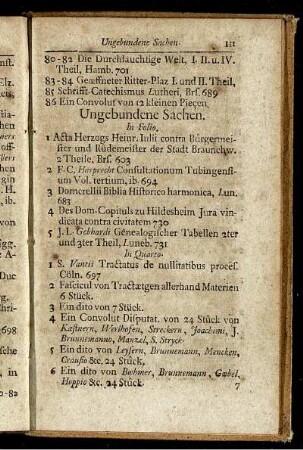 Ungebundene Sachen. 111
80-82 Die Durchlauchtige Welt, I. II. u. IV.
Theil, Hamb. 701
83-84 Geöffneter Ritter-Plaz I. und II. Theil,
85 Schrifft-Catechismus Lutheri, Brs. 689
86 Ein Convolut von 12 kleinen Pieçen.
Ungebundene Sachen.
In Folio.
1 Acta Herzogs Heinr. Iulii contra Bürgermei-
ster und Rüdemeister der Stadt Braunschw.
2 Theile, Brs. 603
2 F. C. Harprecht Consultationum Tubingens-
ium Vol. tertium, ib. 694
3 Domerellii Biblia Historico harmonica, Lun.
683
4 Des Dom-Capituls zu Hildesheim Jura vin-
dicata contra civitatem 730
5 J. L. Gebhardi Genealogischer Tabellen 2ter
und 3ter Theil, Luneb. 731
In Quarto.
1 S. Vantii Tractatus de nullitatibus proces.
Cöln. 697
2 Fascicul von Tractætgen allerhand Materien
6 Stück.
3 Ein dito von 7 Stück.
4 Ein Convolut Disputat. von 24 Stück von
Kæstnern, Werlhofen, Streckern, Joachimi, J.
Brunnemannus, Manzel, S. Stryck
5 Ein dito von Leysern, Brunnemann, Mencken,
Crausio &c. 24 Stück,
6 Ein dito von Bœhmer, Brunnemann, Gœbel,
Hoppio &c. 24 Stück.
7